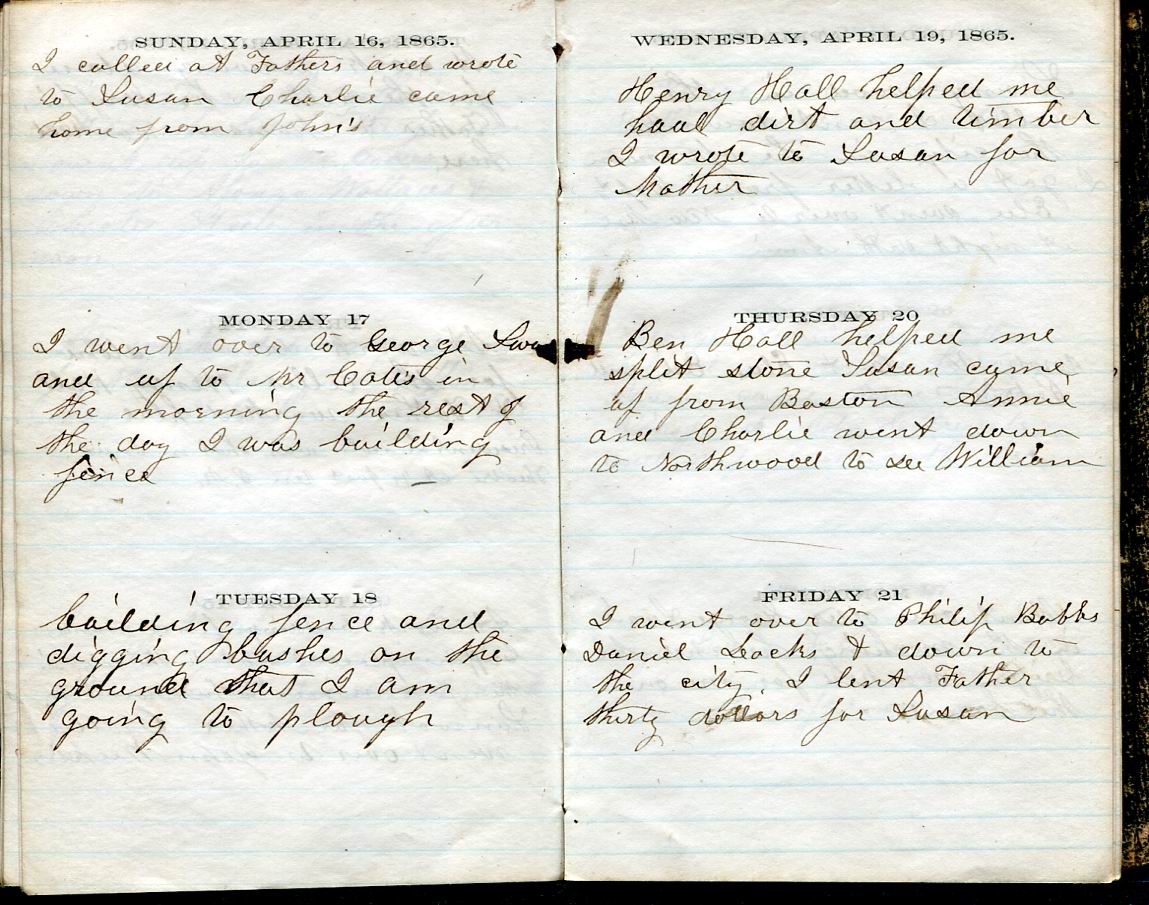 SUNDAY, APRIL 16, 1865.
I called at Fathers and wrote
to Susan Charlie came
home from John's
MONDAY 17
I went over to George
and up to Mr in
the morning the rest of
the day I was building
fence
TUESDAY 18
building fence and
digging bushes on the
ground that I am
going to plough
WEDNESDAY, APRIL 19, 1865.
Henry Hall helped me
haul dirt and timber
I wrote to Susan for
Mother
THURSDAY 20
Ben Hall helped me
split stone Susan came
up from Boston Annie
and Charlie went down
to Northwood to see William
FRIDAY 21
I went over to Philip Babbs
Daniel Locks & down to
the city. I lent Father
thirty dollars for Susan